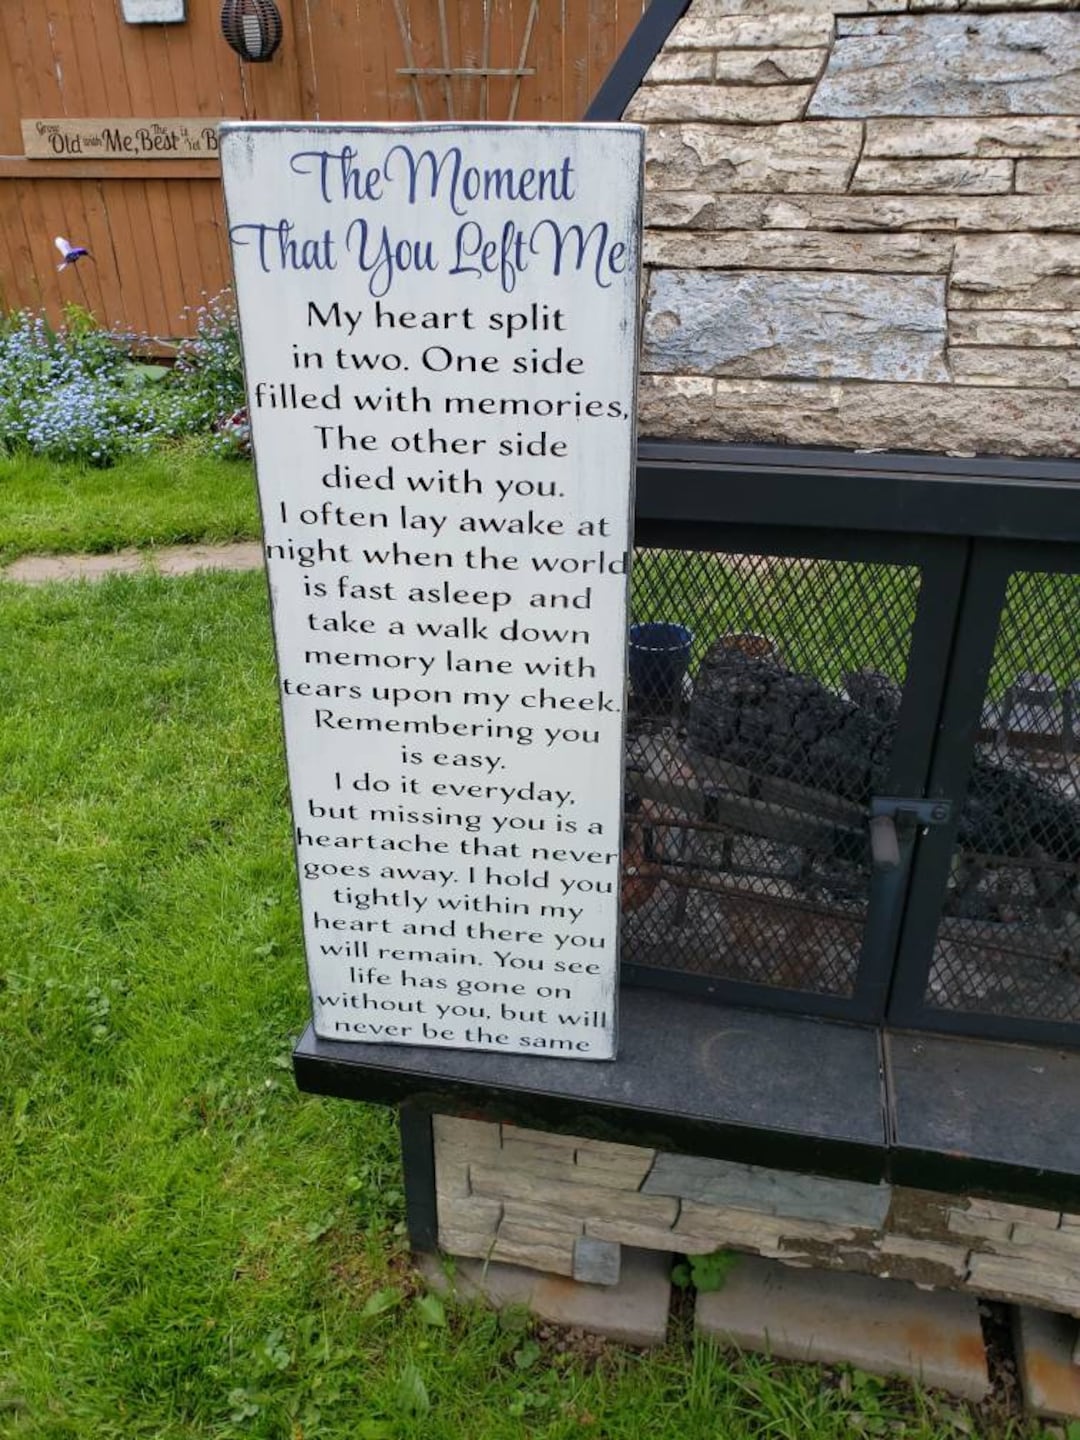 Grow Old with Me, The Best is Yet B
The Moment
That You Left Me
My heart split
in two. One side
filled with memories,
The other side
died with you.
I often lay awake at
night when the world
is fast asleep and
take a walk down
memory lane with
tears upon my cheek.
Remembering you
is easy.
I do it everyday,
but missing you is a
heartache that never
goes away. I hold you
tightly within my
heart and there you
will remain. You see
life has gone on
without you, but will
never be the same